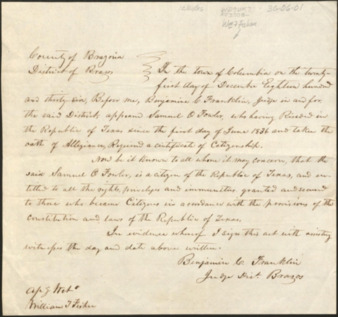 County of Brazoria
District of Brazos
In the town of Columbia on the twenty
first day of December Eighteen hundred
and thirty six, Before me, Benjamin C Franklin, Judge in and for
the said District, appeared Samuel O Fowler, who having Resided in
the Republic of Texas since the first day of June 1836 and taken the
oath of Allegiance, Required a certificate of Citizenship.
Now be it known to all whom it may concern, that the
said Samuel O Fowler, is a citizen of the Republic of Texas, and en-
titled to all the rights, privileges and immunities granted and secured
to those who became Citizens in accordance with the provisions of the
Constitution and laws of the Republic of Texas.
In evidence whereof I sign this act with assisting
witnesses the day and date above written.
Benjamin C. Franklin
Judge Dist Brazos
William F